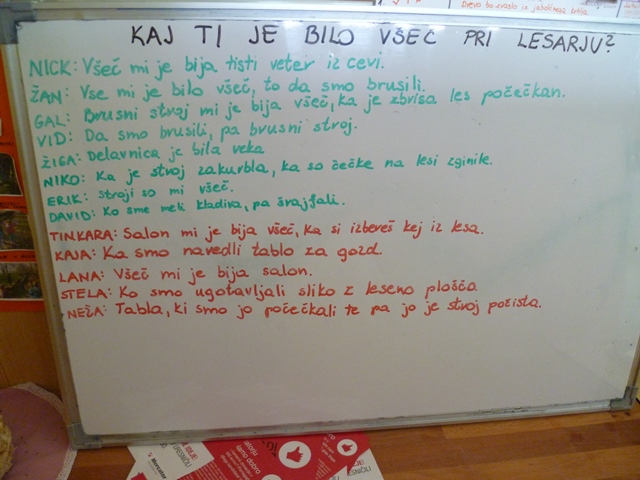 Drevo bo zraslo iz jabolčnega
KAJ TI JE BILO VŠEČ PRI LESARJU?
NICK: Všeč mi je bija tisti veter iz cevi.
ŽAN: Vse mi je bilo všeč, to da smo brusili.
GAL: Brusni stroj mi je bija všeč, ka je zbrisa les počečkan.
VID: Da smo brusili, pa brusni stroj.
ŽIGA: Delavnica je bila velka
NIKO: Ka je stroj zakurbla, ka so čečke na lesi zginile.
ERIK: Stroji so mi všeč.
DAVID: Ko sme meli kladiva, pa šrajfali.
TINKARA: Salon mi je bija všeč, ka si izbereš kej iz lesa.
KAJA: Ka smo navedli tablo za gozd.
LANA: Všeč mi je bija salon.
STELA: Ko smo ugotavljali sliko z leseno plošča
NEŽA: Tabla, ki smo jo počečkali te pa jo je stroj počista.